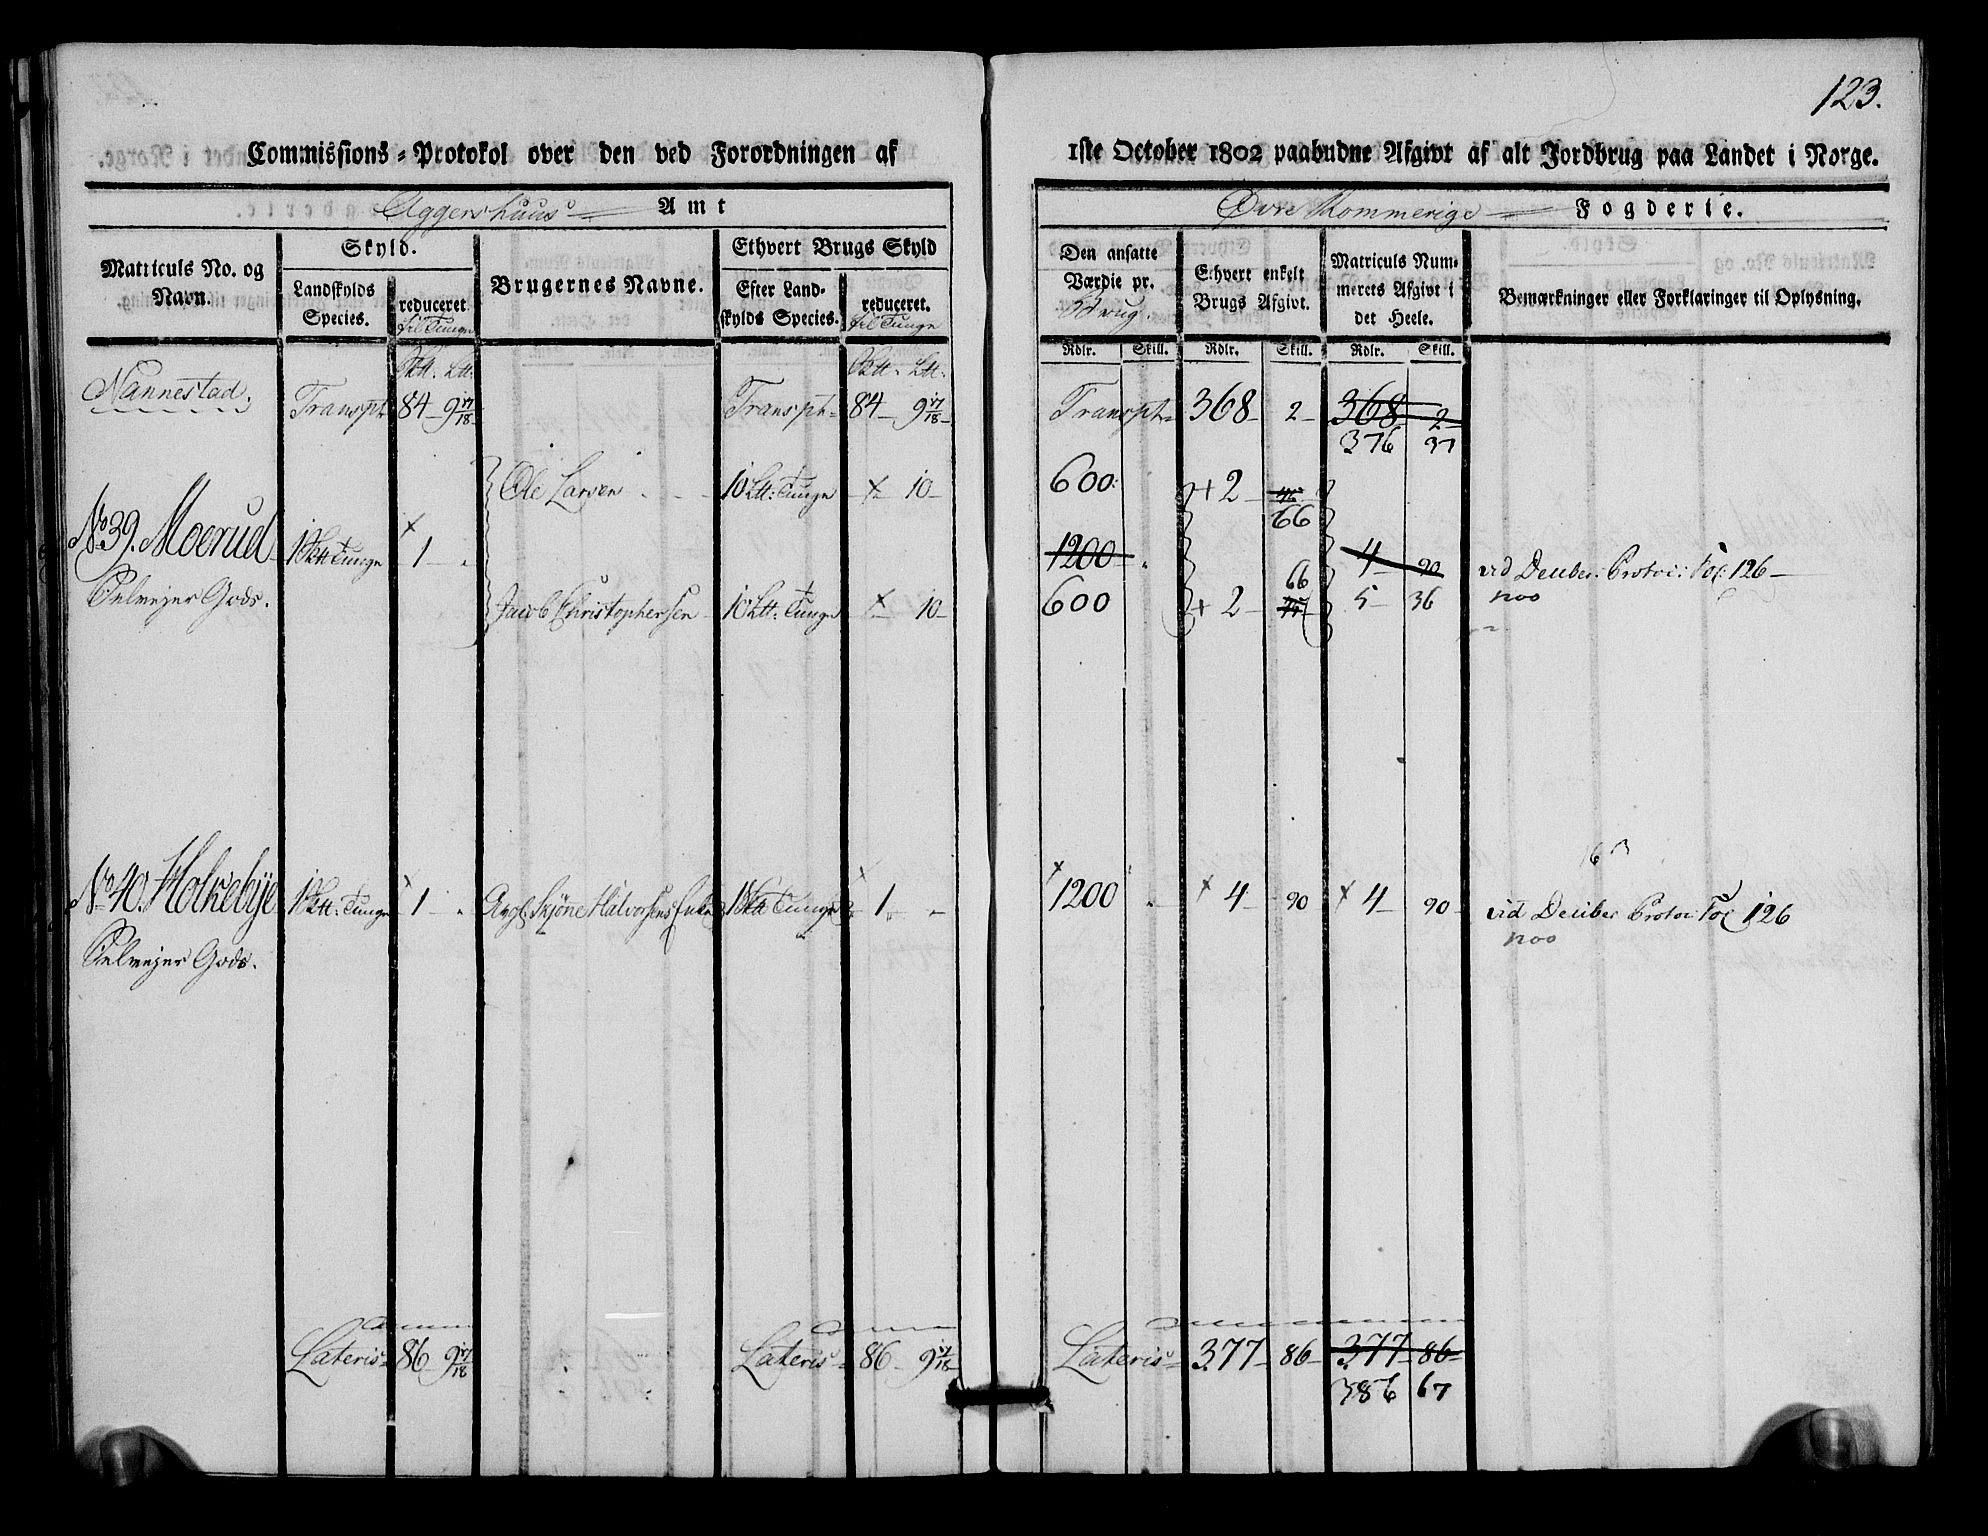 123.
Commissions-Protokol over den ved Forordningen af 1ste October 1802 paabudne Afgivt af alt Jordbrug paa Landet i Norge.
Aggershuus Amt
Øvre Rommerige Fogderie.
Matriculs No. og Navn.
Skyld.
Landskylds Species.
reduceret til Tunge
Brugernes Navne.
Ethvert Brugs Skyld
Efter Landskylds Species.
reduceret. til Tunge
Den ansatte Værdie pr. Brug.
Ethvert enkelt Brugs Afgivt.
Matriculs Nummerets Afgivt i det Heele.
Bemærkninger eller Forklaringer til Oplysning.
Rdlr. Skill. Rdlr. Skill. Rdlr. Skill.
Nannestad.
Transpt 84 - 9 17/18 - Transpt - 84 - 9 17/18 - Transpt - 368 - 2 - 368 - 2 -
376 37
Ole Larsen - - - 10 Ltt: Tunge - 10 - 600: + 2 - 66
No 39. Moerud 1 Sktt Tunge 1 - 1200 - 4 - 90 vid Deliber: Protoc: Fol: 126 -
Gods. Jacob Christophersen 10 Ltt: Tunge 10 - 600 + 2 - 66 5 - 36 noo
No 40. Holkebÿe 1 Sktt: Tunge 1 - Halvorsens Enke 1 Sktt Tunge 1 - 1200 4 - 90 4 - 90 - vid Deliber Protoc: Fol 126
Gods. noo
Lateris - 86 - 9 17/18 Lateris - 86 - 9 17/18 - Lateris - 377 - 86 - 377 - 86 -
386 67